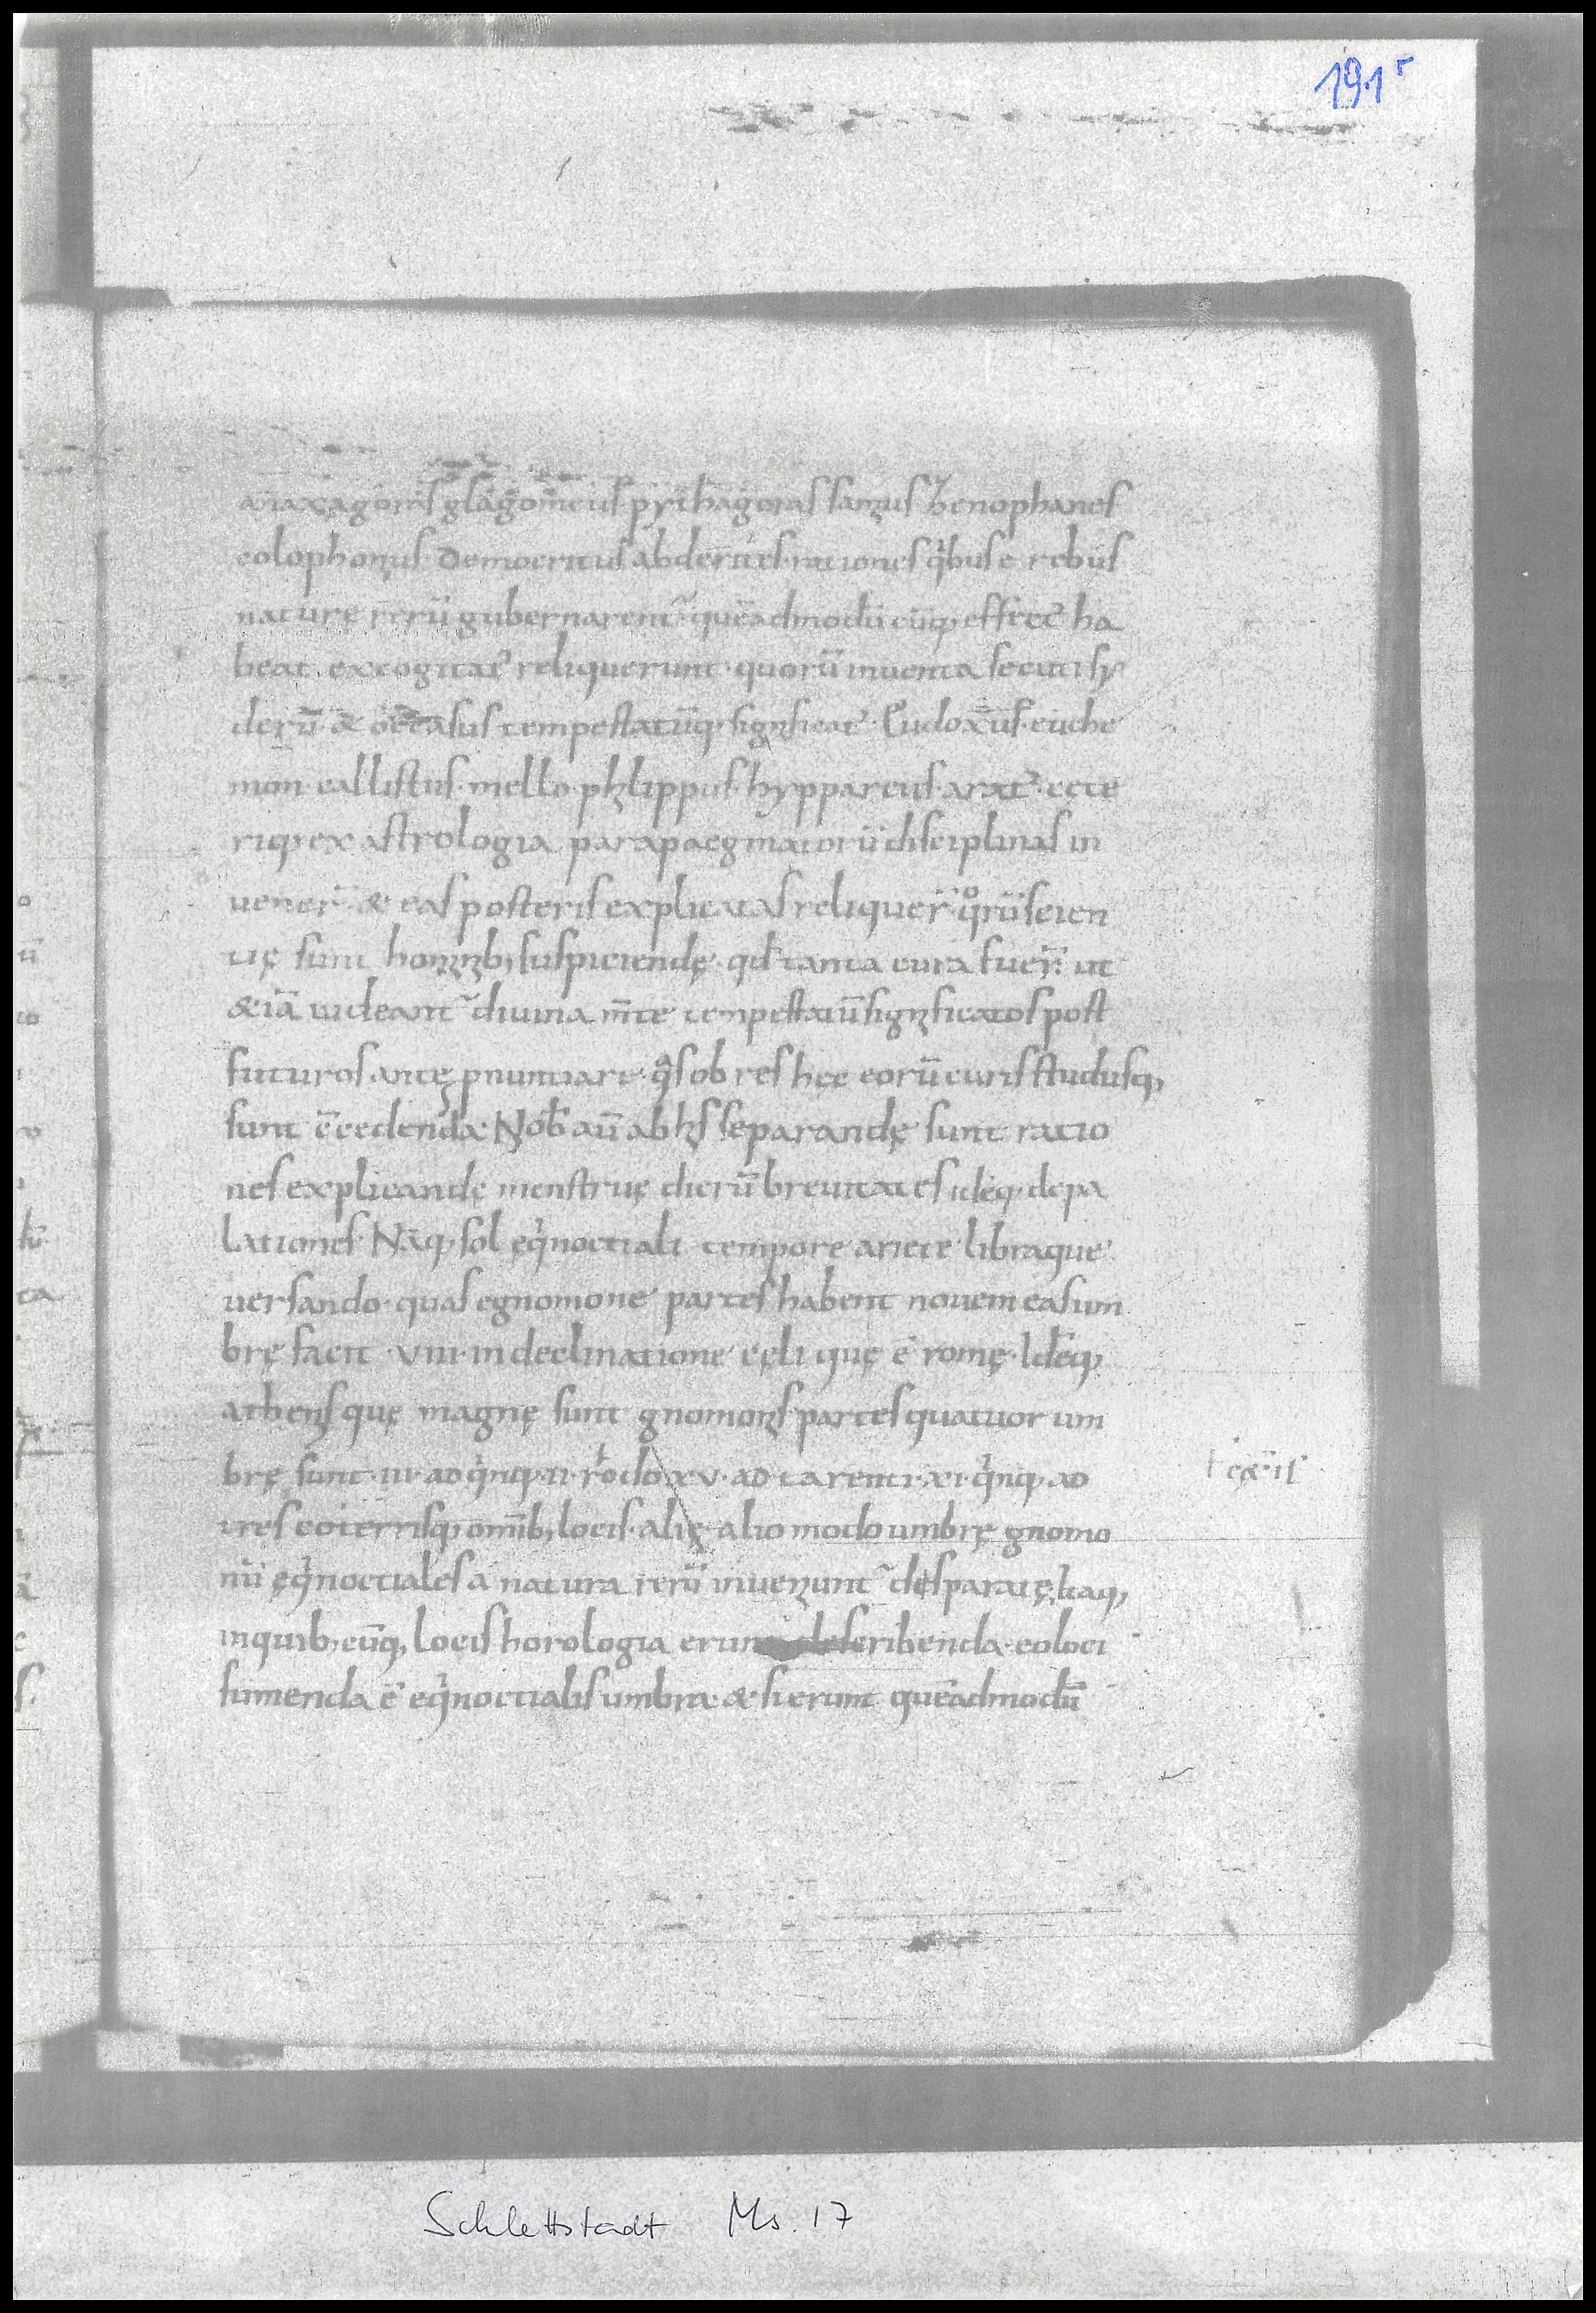 191r
anaxagoras glagomenus pythagoras samius Xenophanes
colophonius. Democritus abderites. rationes qibus e rebus
naturę rerū gubernarent̄ quēadmodū cūq; effect᾽ ha
beat. excogitat᾽ reliquerunt. quorū inventa secuti sy
derū. & occasus tempestatūq; significat᾽. Eudoxus. euche
mon callistus. mello. philippus. hypparcus. arat᾽. cęte
riq; ex astrologia parapaegmatorū disciplinas in
vener̄ & eas posteris explicatas reliquer̄. qorū scien
tię sunt hominib; suspiciendę. qd tanta cura fuer̄. ut
&iā videant̄ divina m̄te tempestatū significatos post
futuros antę pnuntiare. qas ob res hęc eorū curis studiisq;
sunt c̄cedenda. Nob̄ aū ab his separandę sunt ratio
nes explicandę menstruę dierū brevitates idēq; depa
lationes. Nāq; sol eqinoctiali tempore ariete libraque
versando. quas e gnomone partes habent novem eas um
brę facit. VIII. in declinatione cęli quę ē romę. Idēq;
athenis quę magnę sunt gnomonis partes quatuor um
brę sunt. III. ad qinq;. II. rhodo xv. ad tarenti. xi. qinq; ad
tres cęterisq; omnib; locis. alię alio modo umbrę gnomo
nū ęqinoctiales a natura rerū inveniunt̄ desparatę. Itaq;
in quib; cūq; locis horologia erunt describenda. eo loci
sumenda ē eqinoctialis umbra & si erunt quēadmodū
Schlettstadt Ms. 17